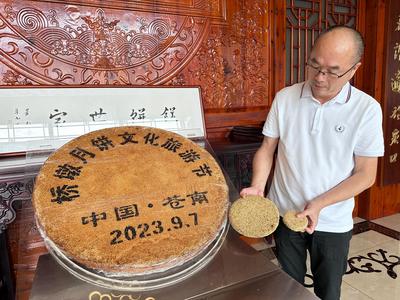 餅世家
桥墩月饼文化旅游节
中国·苍南
2023.9.7